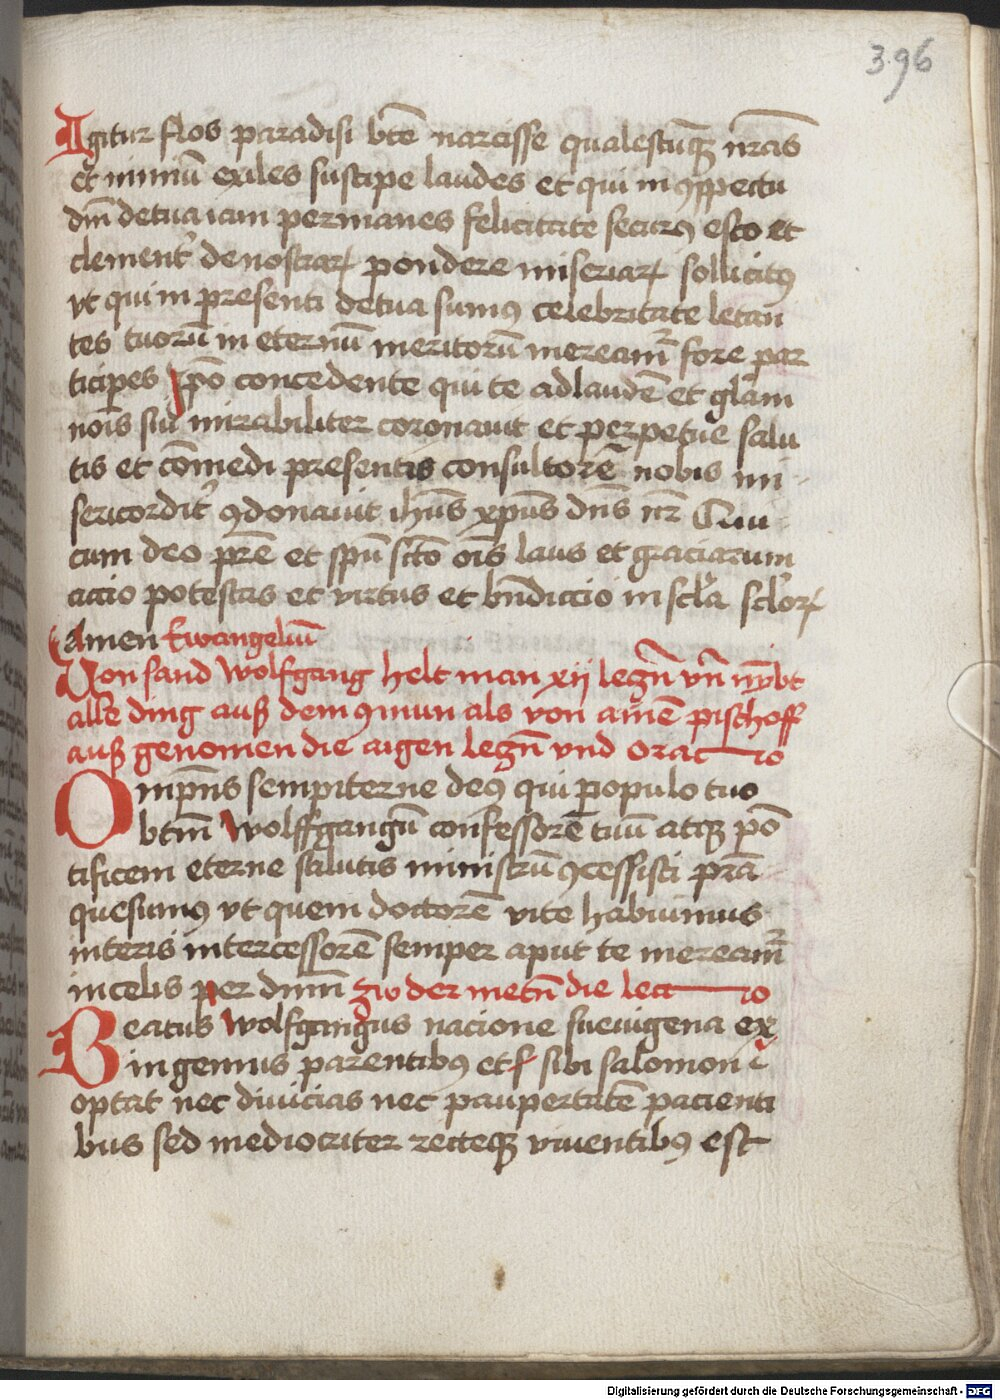 396
Igitur flos paradisi bte̅ narcisse qualescu̅qꝫ nr̅as
et nimiu̅ exiles suscipe laudes et qui in ꝯspectu
dni̅ de tua iam permanes felicitate securꝯ esto et
clement' de nostraꝝ pondere miseriaꝝ sollicitꝯ
vt qui in presenti de tua sumꝯ celebritate letan
tes tuoru̅ in eternu̅ meritoru̅ meream̅ fore par
ticipes xp̅o concedente qui te ad laude̅ et gl̅am
nois̅ sui mirabiliter coronauit et perpetue salu
tis et co̅medi presentis consultore̅ nobis mi
sericordit' ꝯdonauit ih̅us xp̅us dn̅s nr̅ Cui
cum deo pr̅e et spu̅ sct̅o ois̅ laus et graciarum
accio potestas et virtus et bn̅diccio in scl̅a scl̅oꝝ
Amen Ewangeliu̅
Von sand Wolfgang helt man xij lecz̅n vn̅ nymbt
alle ding auß dem ꝯmun als von aine̅ pischoff
auß genomen die aigen lecz̅n vnd oracio
Omp̅ns sempiterne deꝯ qui populo tuo
btm̅ Wolffgangu̅ confessore̅ tuu̅ atqꝫ po̅
tificem eterne salutis ministru̅ ꝯcessisti pr̅a
quesumꝯ vt quem doctore̅ vite habuimus
in teris intercessore̅ semper aput te meream̅
in celis per dnm̅ zw der metn̅ die leccio
Beatus Wolfgangus nacione sueuigena ex
ingenuis parentibꝯ et sibi salomon
optat nec diuicias nec paupertate̅ pacienti
bus sed mediocriter recteqꝫ viuentibꝯ est
Digitalisierung gefördert durch die Deutsche Forschungsgemeinschaft - DFG